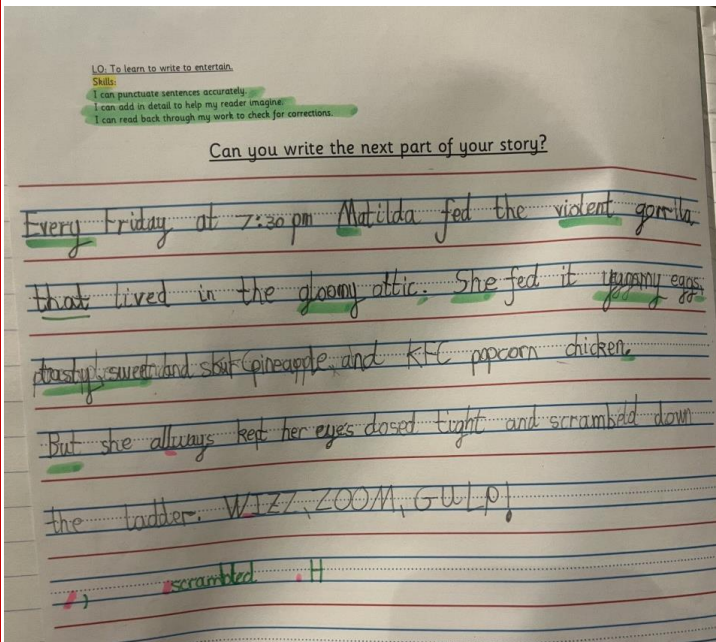 LO: To learn to write to entertain.
Skills:
I can punctuate sentences accurately.
I can add in detail to help my reader imagine.
I can read back through my work to check for corrections.
Can you write the next part of your story?
Every Friday at 7:30 pm Matilda fed the violent gorrila
that lived in the gloomy attic. She fed it yummy eggs,
tasty, sweet and pineapple and KFC popcorn chicken.
But she allways kept her eyes closed tight and scrambeld down
the ladder. WIZZ, ZOOM, GULP!
, scrambled . H